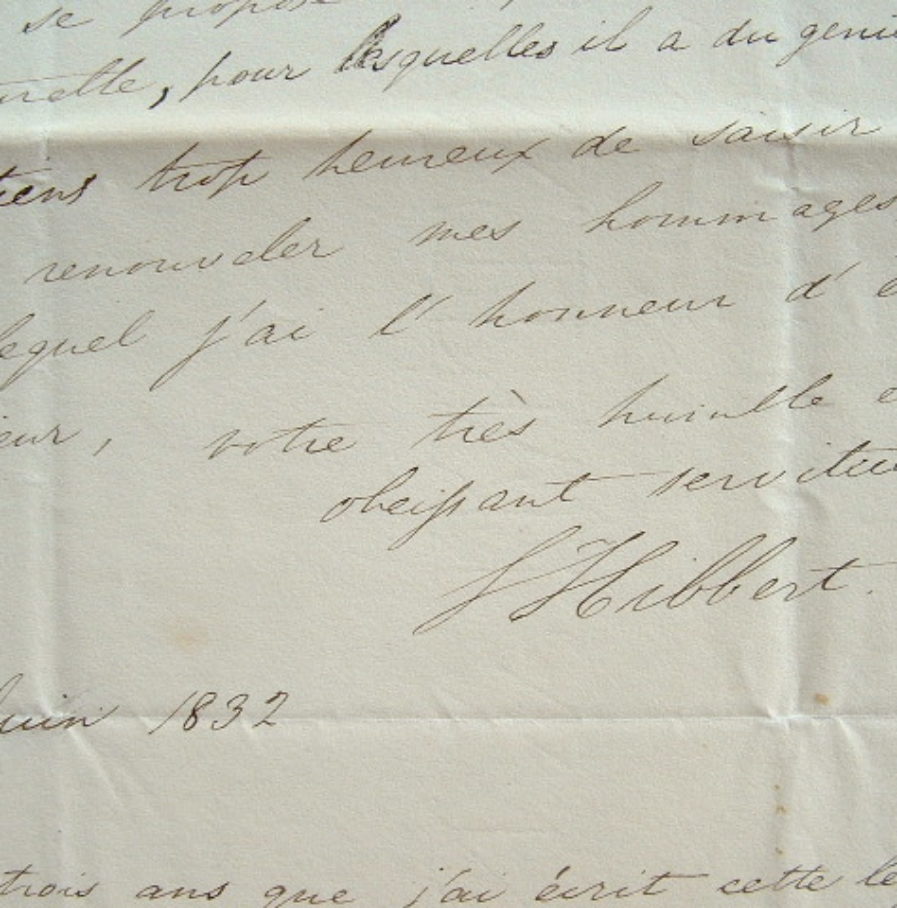 se propose
urelle, pour lesquelles il a du genie
tiens trop heureux de saisir
renouveler mes hommages
lequel j'ai l'honneur d'ê
eur, votre très humble e
obeissant serviteu
S Hibbert.
Juin 1832
trois ans que j'ai écrit cette le